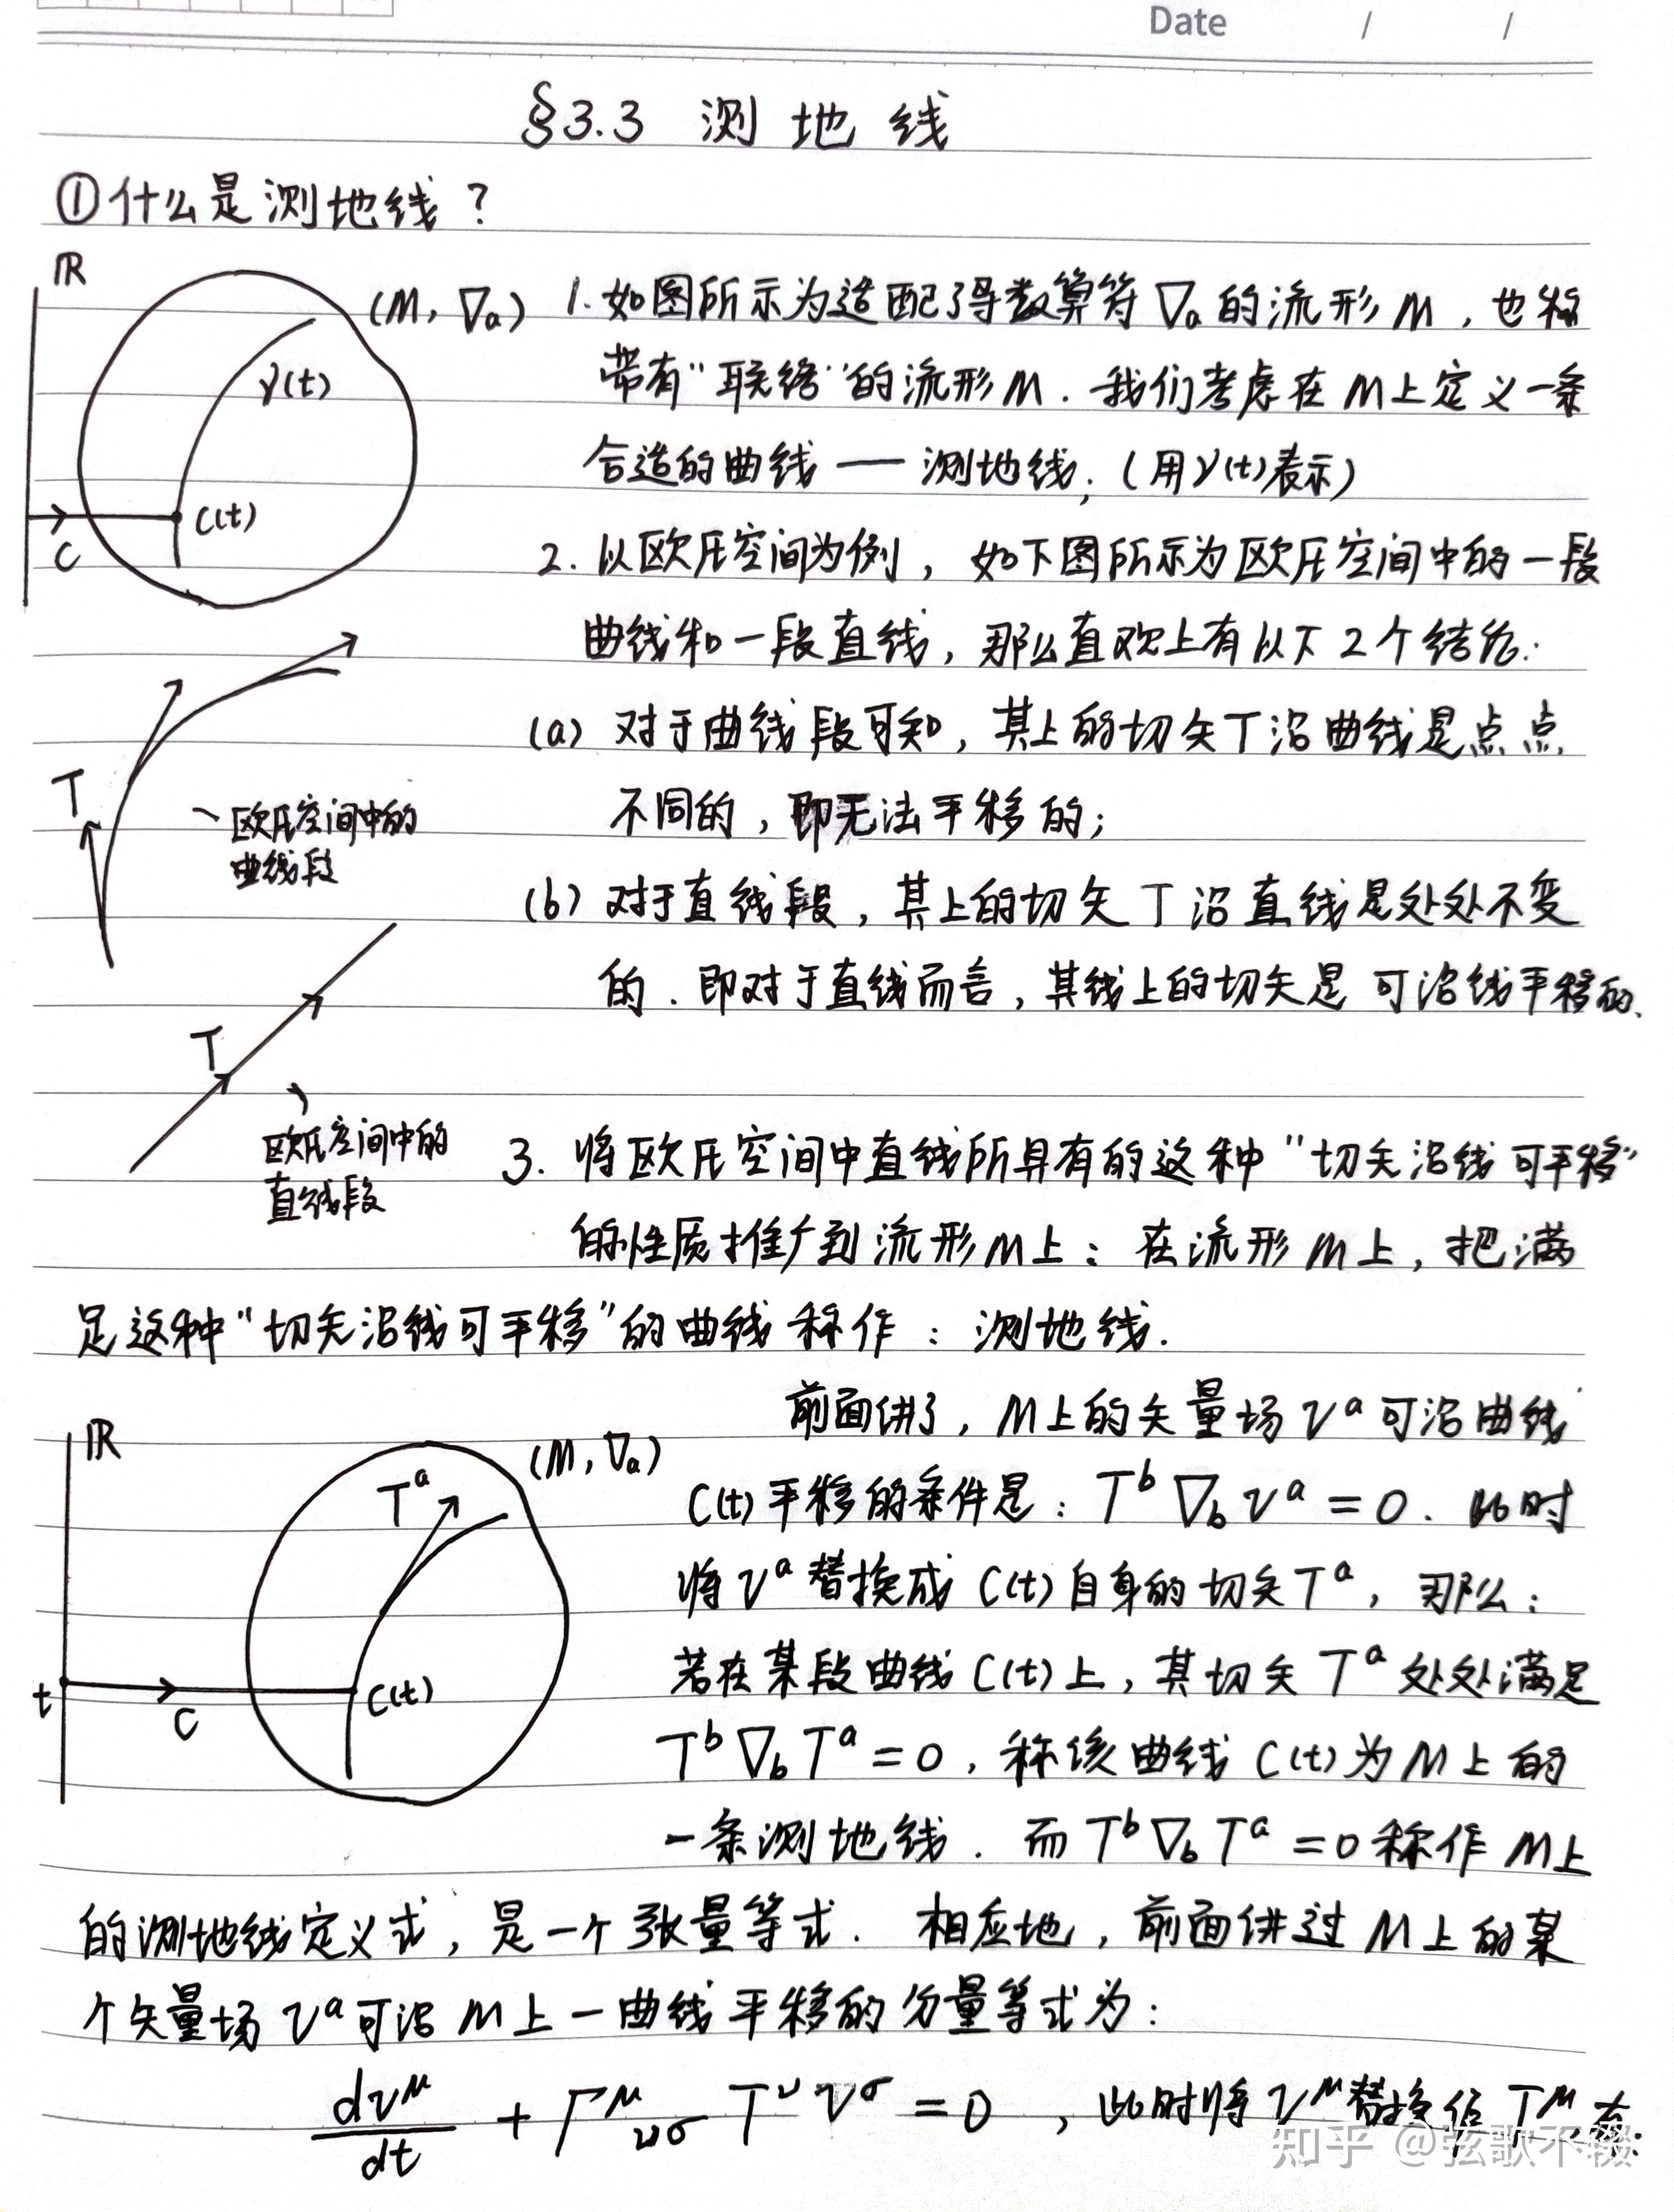 Date / /
§3.3 测地线
①什么是测地线?
ℝ
(M, ∇ₐ)
γ(t)
C(t)
C
1. 如图所示为适配了导数算符 ∇ₐ 的流形 M, 也称
带有"联络"的流形 M. 我们考虑在 M上定义一条
合适的曲线 —— 测地线; (用γ(t)表示)
2. 以欧氏空间为例, 如下图所示为欧氏空间中的一段
曲线和一段直线, 那么直观上有以下 2个结论:
(a) 对于曲线段可知, 其上的切矢T沿曲线是点点
不同的, 即无法平移的;
(b) 对于直线段, 其上的切矢T沿直线是处处不变
的. 即对于直线而言, 其线上的切矢是可沿线平移的.
T
欧氏空间中的
曲线段
T
欧氏空间中的
直线段
3. 将欧氏空间中直线所具有的这种"切矢沿线可平移"
的性质推广到流形M上: 在流形M上, 把满
足这种"切矢沿线可平移"的曲线称作: 测地线.
ℝ
(M, ∇ₐ)
Tᵃ
C(t)
t
C
前面讲了, M上的矢量场 vᵃ 可沿曲线
C(t)平移的条件是: Tᵇ∇_b vᵃ = 0. 此时
将 vᵃ 替换成 C(t)自身的切矢Tᵃ, 那么:
若在某段曲线C(t)上, 其切矢 Tᵃ 处处满足
Tᵇ∇_b Tᵃ = 0, 称该曲线C(t)为M上的
一条测地线. 而 Tᵇ∇_b Tᵃ = 0 称作 M上
的测地线定义式, 是一个张量等式. 相应地, 前面讲过 M上的某
个矢量场 vᵃ可沿 M上一曲线平移的分量等式为:
dv^μ/dt + Γ^μ_νσ T^ν v^σ = 0, 此时将 v^μ替换位 T^μ有:
知乎 @弦歌不辍